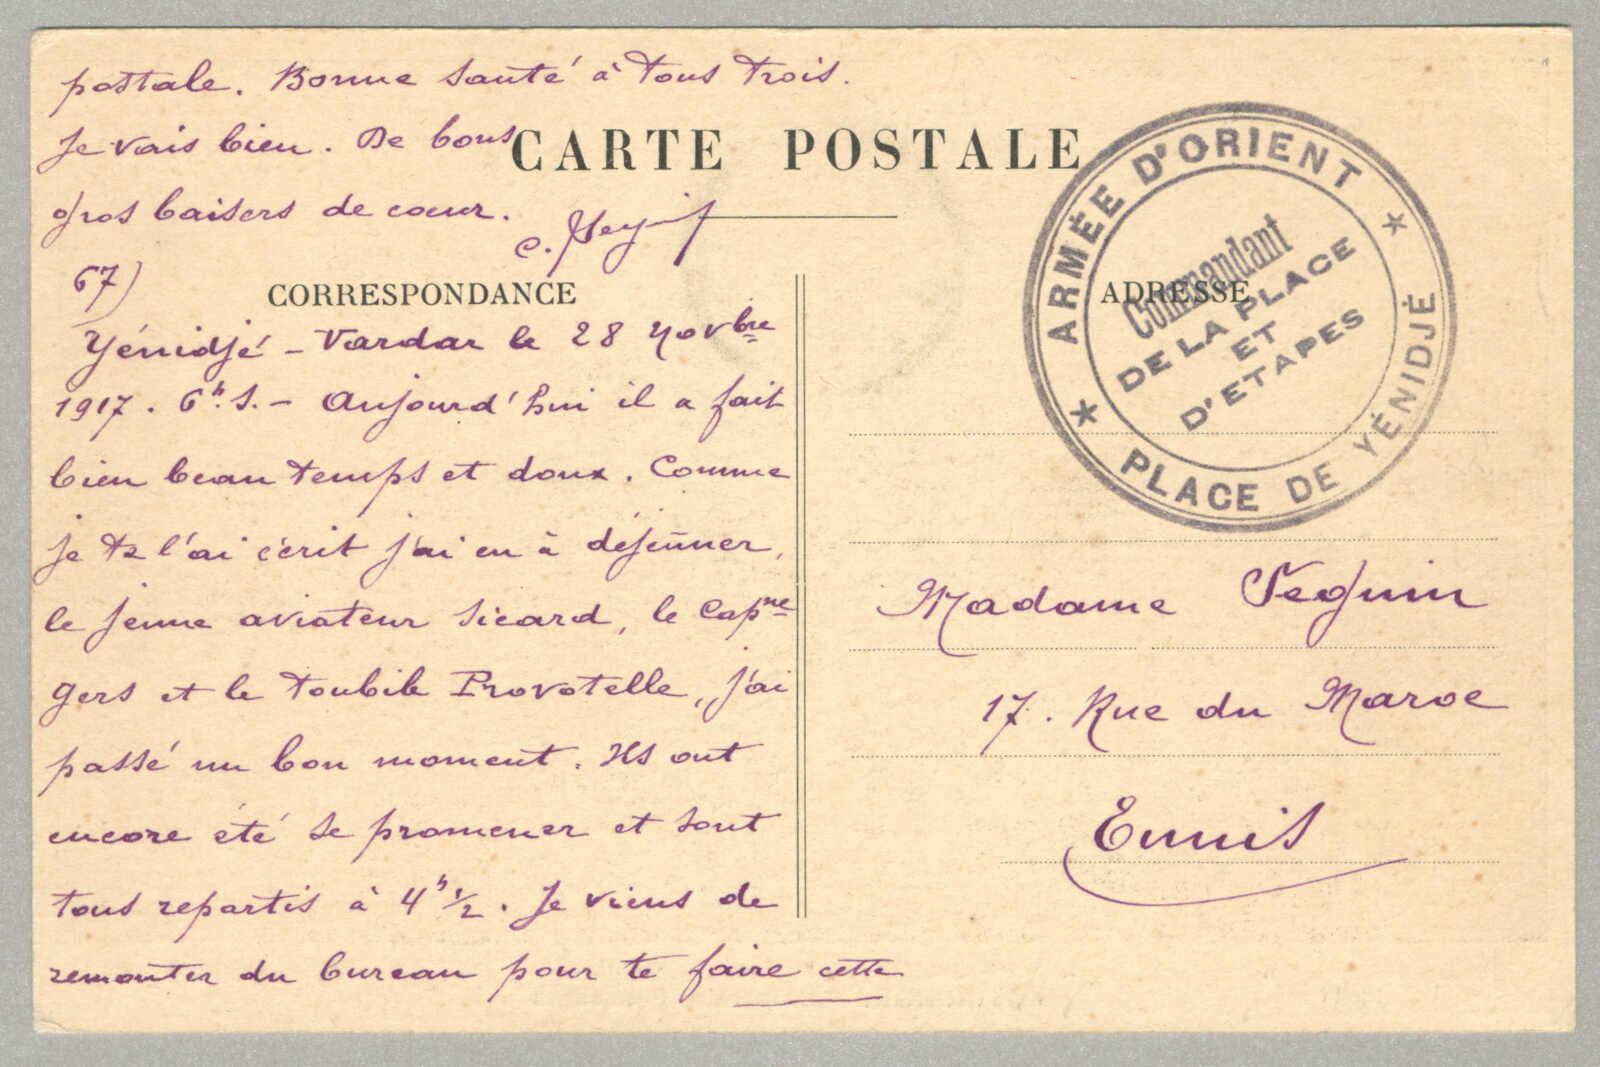 67)
Yénidjé - Vardar le 28 Novbre
1917. 6h. S. - Aujourd'hui il a fait
bien beau temps et doux. Comme
je te l'ai écrit j'ai eu à déjeûner,
le jeune aviateur Sicard, le Capne
Gers et le toubib Provotelle, j'ai
passé un bon moment. Ils ont
encore été se promener et sont
tous repartis à 4h 1/2. Je viens de
remonter du bureau pour te faire cette
postale. Bonne santé à tous trois.
Je vais bien. De bons
gros baisers de cœur.
C. Seguin
CARTE POSTALE
CORRESPONDANCE
ADRESSE
ARMÉE D'ORIENT
Commandant
DE LA PLACE
ET
D'ETAPES
* PLACE DE YÉNIDJÉ *
Madame Seguin
17. Rue du Maroc
Tunis